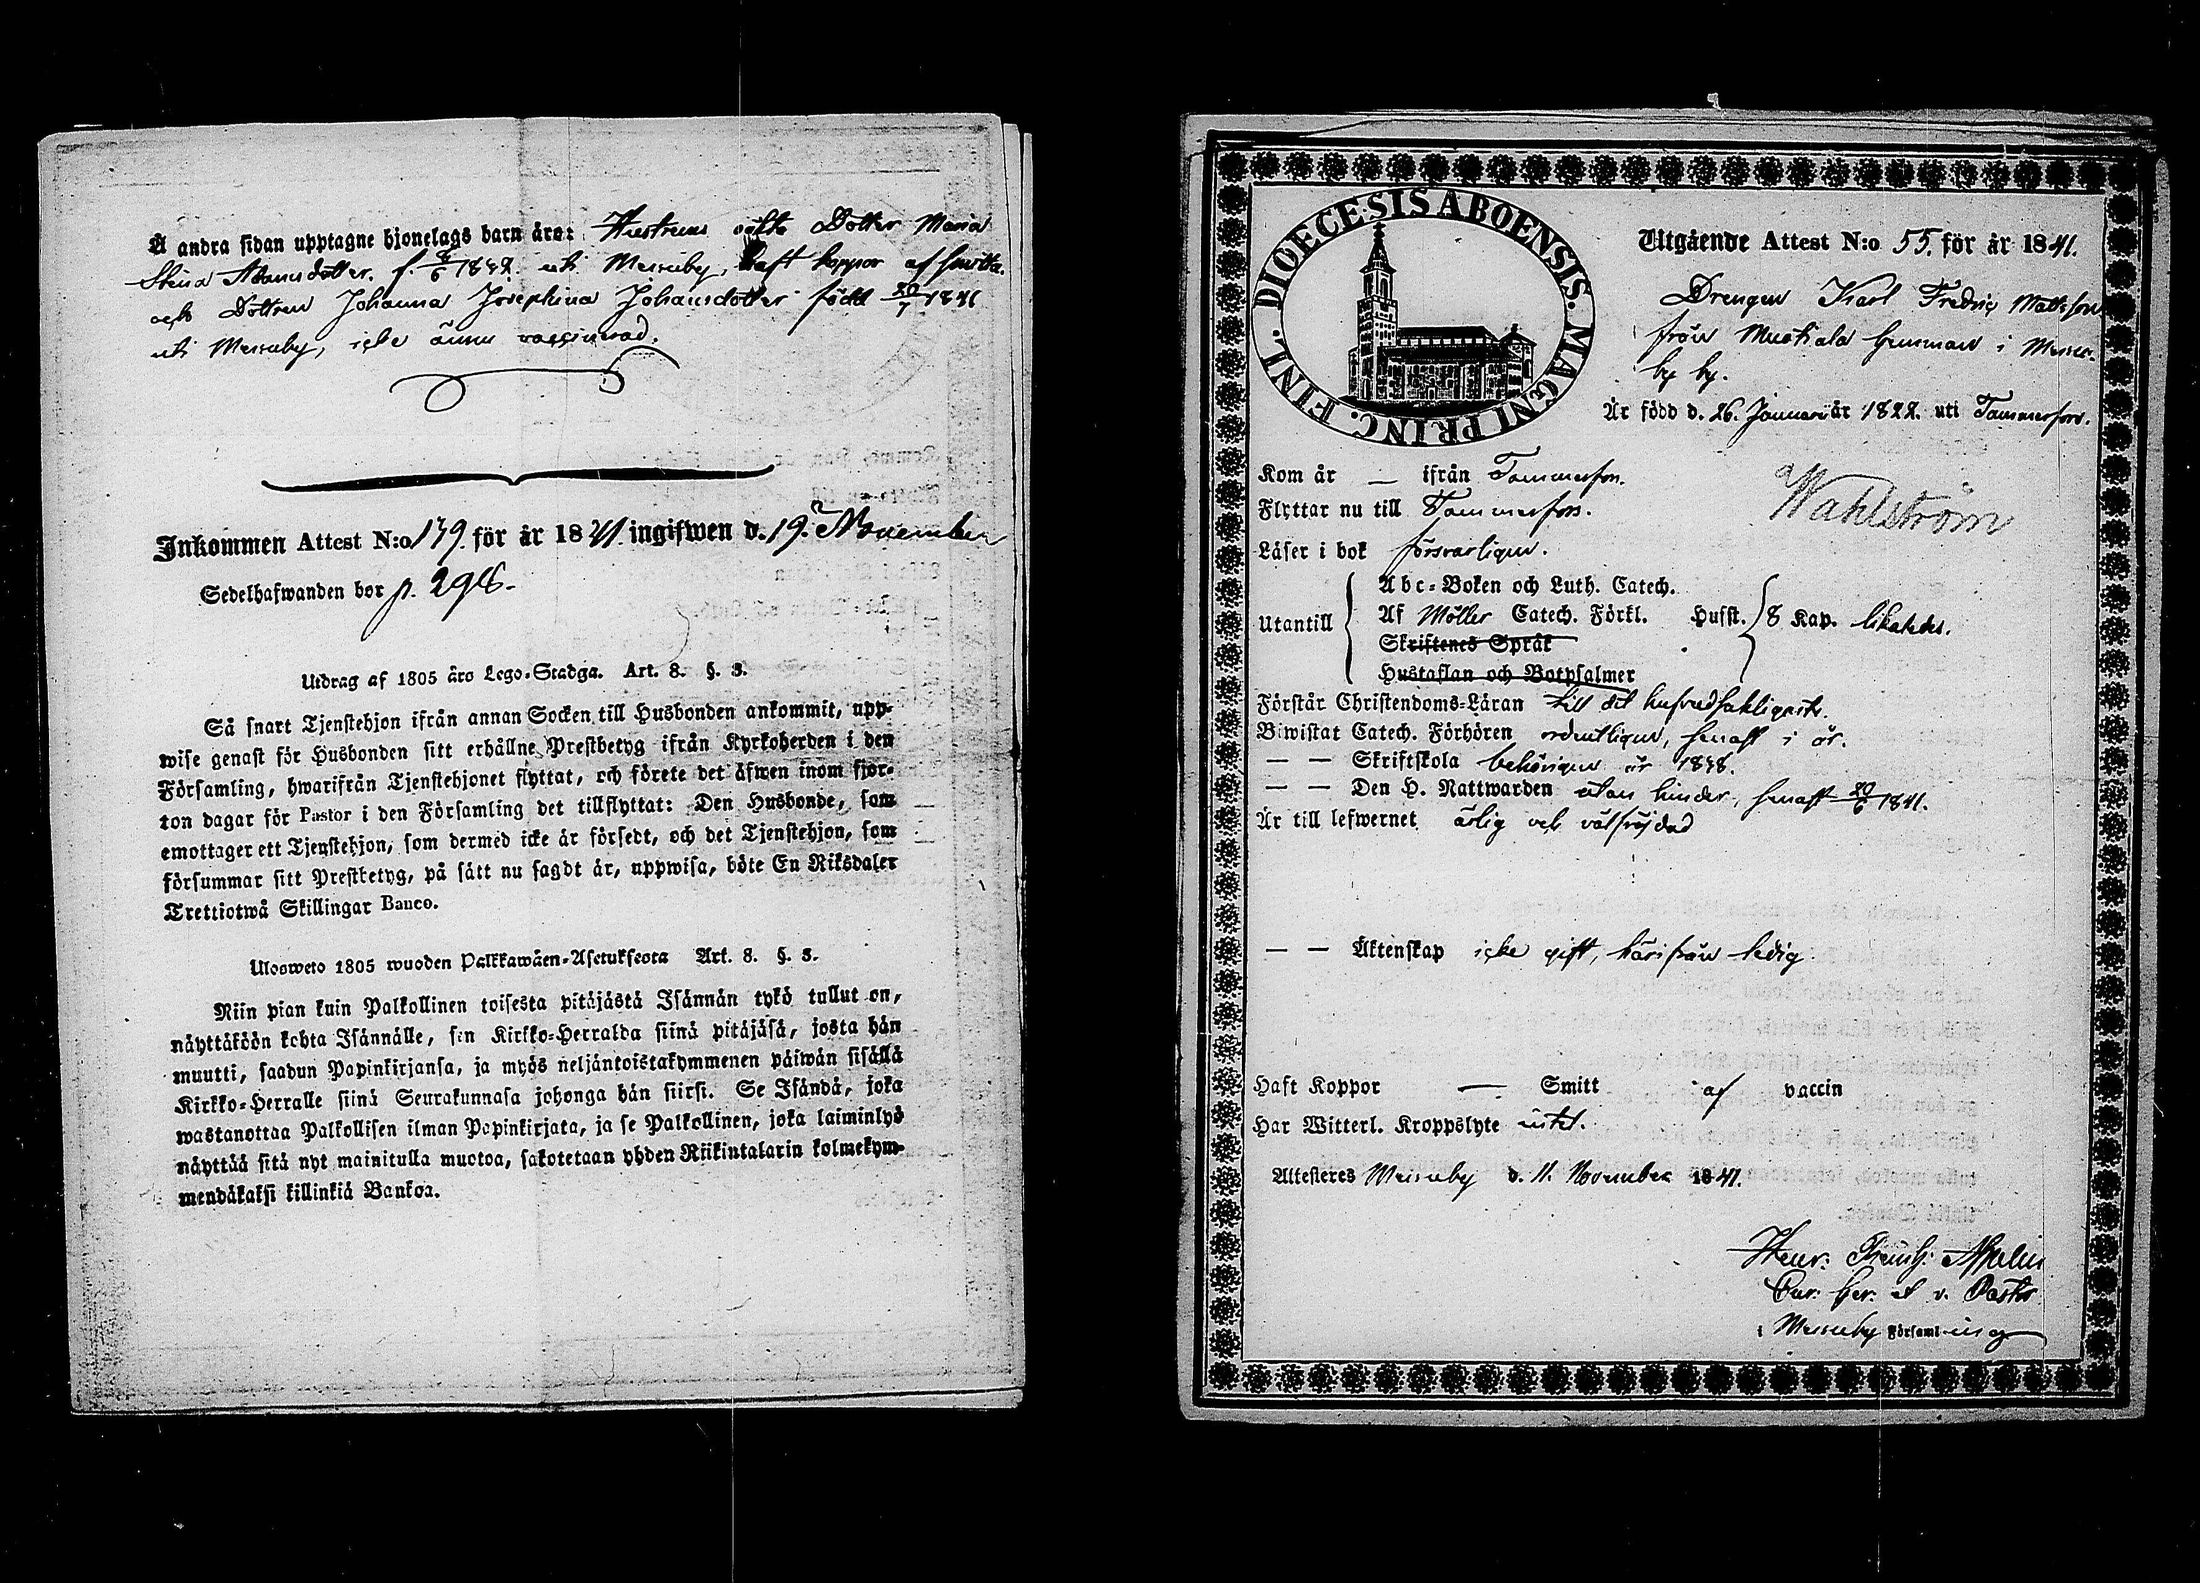 Å andra sidan upptagne hjonelags barn äro: Hustruns oäkta Dotter Maria
Stina Adamsdotter. f. 8/6 1832. uti Messuby, haft koppor af smitta.
och Dottren Johanna Josephina Johansdotter född 20/7 1841
uti Messuby, icke ännu vaccinerad.
Inkommen Attest N:o 139. för år 1841. ingifwen d. 19. November
Sedelhafwanden bor p. 298.
Utdrag af 1805 års Lego-Stadga. Art. 8. §. 3.
Så snart Tjenstehjon ifrån annan Socken till Husbonden ankommit, upp-
wise genast för Husbonden sitt erhållne Prestbetyg ifrån Kyrkoherden i den
Församling, hwarifrån Tjenstehjonet flyttat, och förete det äfwen inom fjor-
ton dagar för Pastor i den Församling det tillflyttat: Den Husbonde, som
emottager ett Tjenstehjon, som dermed icke är försedt, och det Tjenstehjon, som
försummar sitt Prestbetyg, på sätt nu sagdt är, uppwisa, böte En Riksdaler
Trettiotwå Skillingar Banco.
Ulosweto 1805 wuoden Palkkawäen-Asetuksesta Art. 8. §. 3.
Niin pian kuin Palkollinen toisesta pitäjästä Isännän tykö tullut on,
näyttäköön kohta Isännälle, sen Kirkko-Herralda siinä pitäjäsä, josta hän
muutti, saadun Papinkirjansa, ja myös neljäntoistakymmenen päiwän sisällä
Kirkko-Herralle siinä Seurakunnasa johonga hän siirsi. Se Isändä, joka
wastanottaa Palkollisen ilman Papinkirjata, ja se Palkollinen, joka laiminlyö
näyttää sitä nyt mainitulla muotoa, sakotetaan yhden Riikintalarin kolmekym-
mendäkaksi killinkiä Bankoa.
DIOECESIS ABOENSIS. MAGNI PRINC. FINL.
Utgående Attest N:o 55. för år 1841.
Drengen Karl Fredric Mattsson
från Mustiala hemman i Messu-
by by.
Är född d. 26. Januarii år 1822. uti Tammerfors.
Kom år — ifrån Tammerfors.
Flyttar nu till Tammerfors.
Wahlström
Läser i bok försvarligen.
Utantill
Abc-Boken och Luth. Catech.
Af Möller Catech. Förkl. Husst. 8 Kap. likaledes.
Skriftenes Språk
Hustaflan och Botpsalmer
Förstår Christendoms-Läran till det hufvudsakligaste.
Biwistat Catech. Förhören ordentligen, senast i år.
— — Skriftskola behörigen år 1838.
— — Den H. Nattwarden utan hinder, senast 20/6 1841.
Är till lefwernet ärlig och välfrejdad
— — Äktenskap icke gift, härifrån ledig.
Haft Koppor — Smitt af vaccin
Har Witterl. Kroppslyte intet.
Attesteres Messuby d. 11. November 1841.
Henr:
v. Pastor
i Messuby Församling